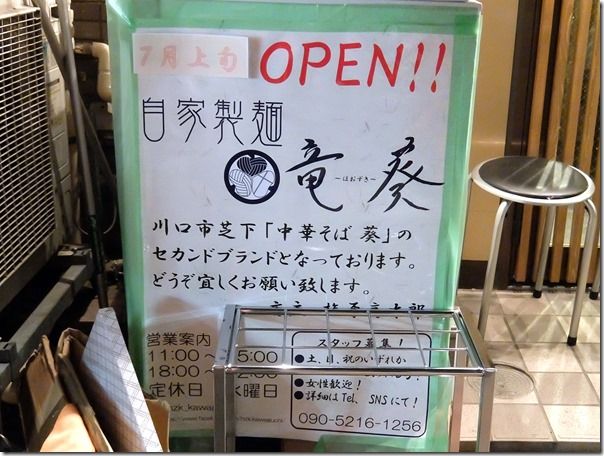 7月上旬 OPEN!!
自家製麺
竜葵
～ほおずき～
川口市芝下「中華そば 葵」の
セカンドブランドとなっております。
どうぞ宜しくお願い致します。
営業案内
11:00～
5:00
18:00～
定休日
水曜日
スタッフ募集！
●土、日、祝のいずれか
●女性歓迎！
●詳細はTel、SNSにて！
090-5216-1256